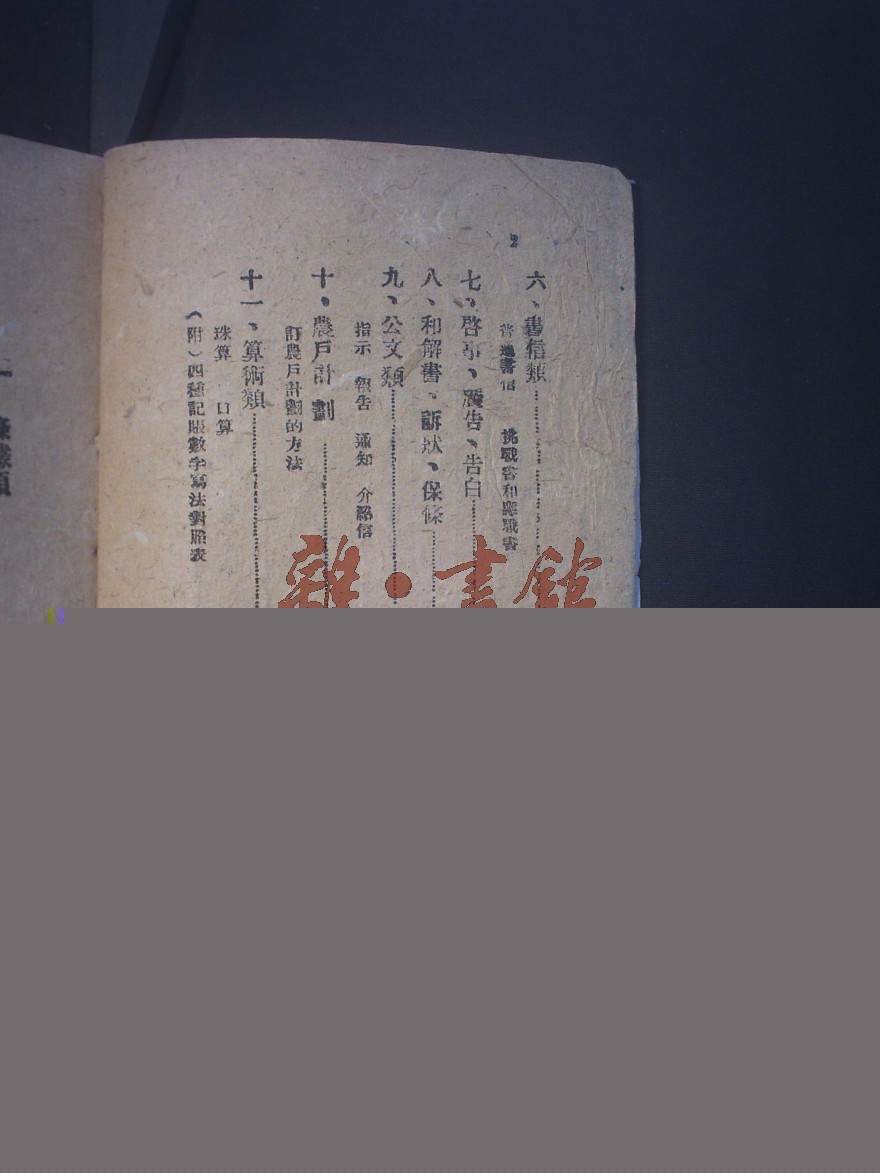 2
六、書信類
普通書信 挑戰書和應戰書
七、啓事、廣告、告白
八、和解書、訴狀、保條
九、公文類
指示 報告 通知 介紹信
十、農戶計劃
訂農戶計劃的方法
十一、算術類
珠算 口算
（附）四種記賬數字寫法對照表
雜·書館